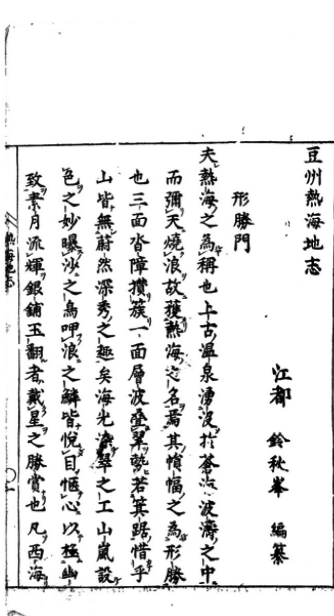 豆州熱海地志
江都 鈴秋峯 編纂
形勝門
夫熱海之為稱也上古温泉湧没於蒼波濤之中
而彌天燒浪故獲熱海之名焉其幅之為形勝
也三面沓障攢簇一面層波疊翠勢若箕踞惜乎
山皆無蔚然深秀之趣矣海光翠之工山嵐設
色之妙曝沙之鳥呷浪之鱗皆悅目愜心以極幽
致素月流輝銀鋪玉翻者戴星之勝賞也凡西海